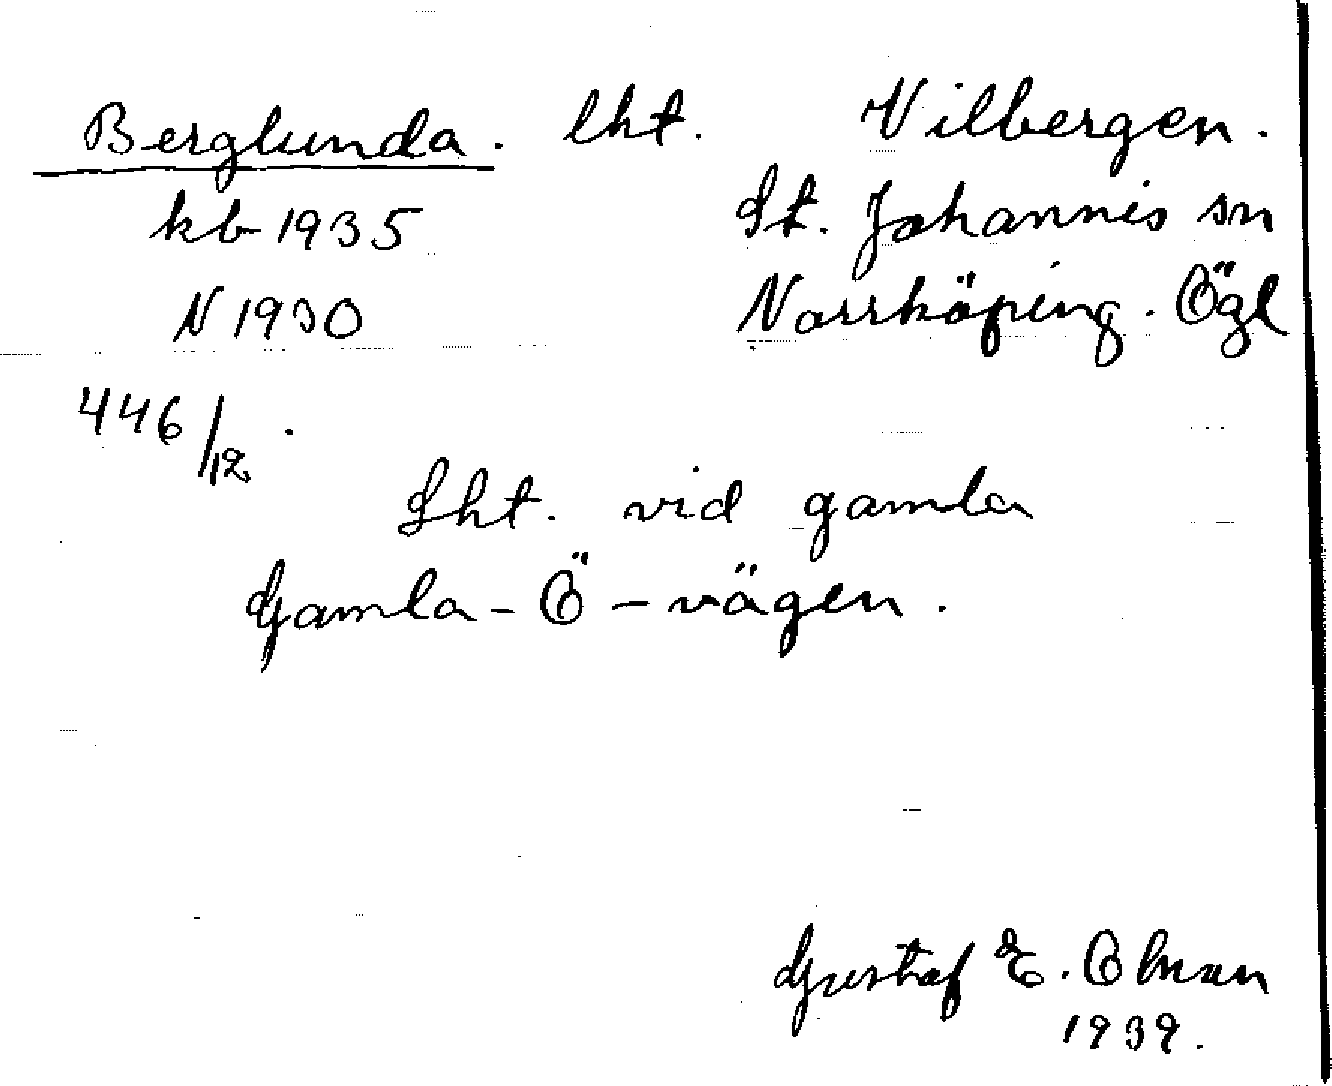 Berglunda. lht. Vilbergen.
kb 1935 St. Johannis sn
N 1930 Norrköping. Ögl
446/12.
Lht. vid gamla
Gamla-Ö-vägen.
Gustaf E.
1939.